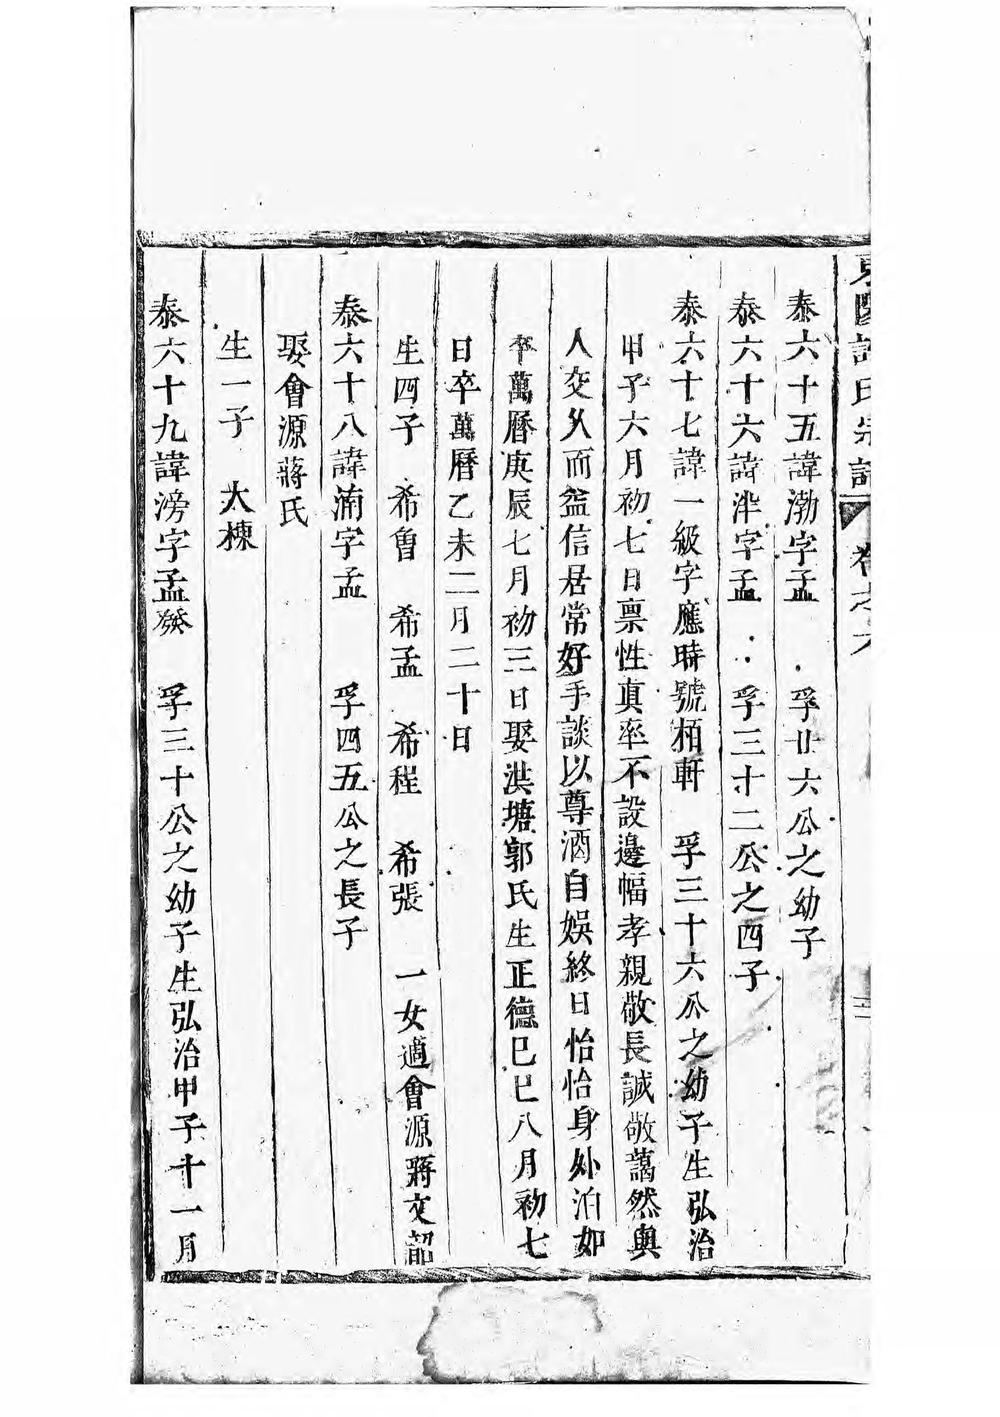 泰六十五諱渤字孟　孚廿六公之幼子
泰六十六諱泮字孟　孚三十二公之四子
泰六十七諱一級字應時號栢軒　孚三十六公之幼子生弘治
甲子六月初七日禀性真率不設邊幅孝親敬長誠敬藹然與
人交久而益信居常好手談以尊酒自娛終日怡怡身外泊如
卒萬曆庚辰七月初三日娶洪塘郭氏生正德已巳八月初七
日卒萬曆乙未二月二十日
生四子　希魯　希孟　希程　希張　一女適會源蔣文韶
泰六十八諱湳字孟　孚四五公之長子
娶會源蔣氏
生一子　大棟
泰六十九諱滂字孟發　孚三十公之幼子生弘治甲子十一月